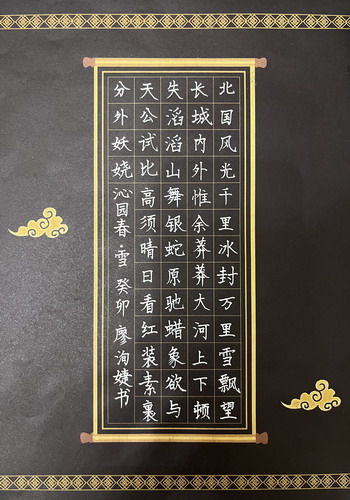 北国风光千里冰封万里雪飘望
长城内外惟余莽莽大河上下顿
失滔滔山舞银蛇原驰蜡象欲与
天公试比高须晴日看红装素裹
分外妖娆 沁园春·雪 癸卯 廖洵婕书